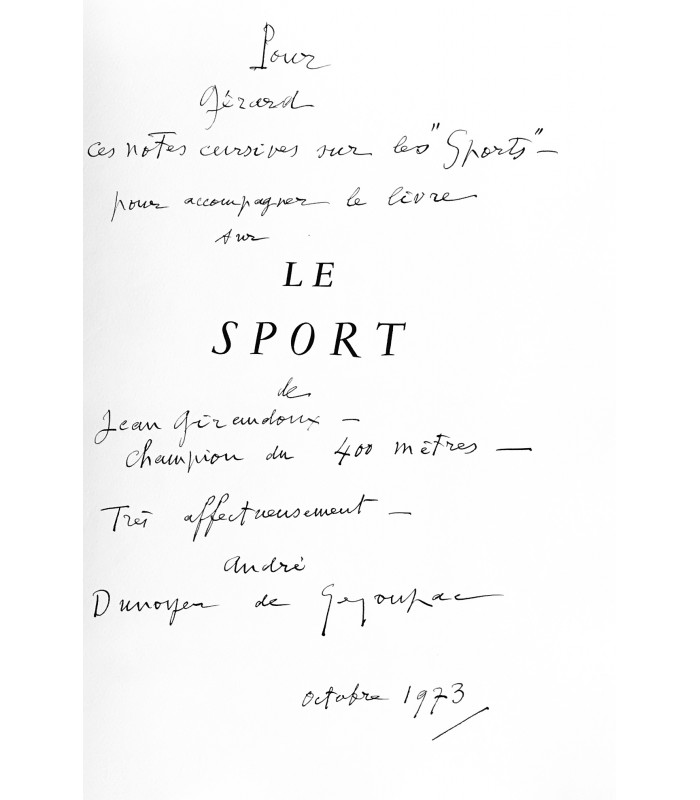 Pour
Gérard
ces notes cursives sur les "Sports" —
pour accompagner le livre
sur
LE
SPORT
de
Jean Giraudoux —
champion du 400 mètres —
Très affectueusement —
André
Dunoyer de Segonzac
octobre 1973